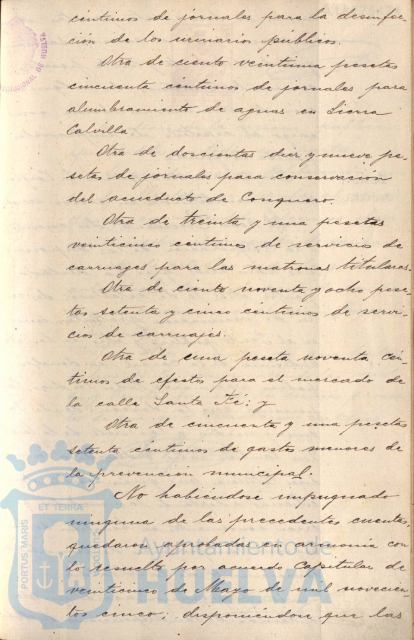 céntimos de jornales para la desinfec-
ción de los urinarios públicos.
Otra de ciento veintiuna pesetas
cincuenta céntimos de jornales para
alumbramiento de aguas en Sierra
Calvilla
Otra de doscientas diez y nueve pe-
setas de jornales para conservación
del acueducto de Conquero.
Otra de treinta y una pesetas
veinticinco céntimos de servicio de
carruages para las matronas titulares.
Otra de ciento noventa y ocho pese-
tas setenta y cinco céntimos de servi-
cios de carruajes.
Otra de una peseta noventa cén-
timos de efectos para el mercado de
la calle Santa Fé: y
Otra de cincuenta y una pesetas
setenta céntimos de gastos menores de
la prevención municipal.
No habiéndose impugnado
ninguna de las precedentes cuentas,
quedaron aprobadas en armonía con
lo resuelto por acuerdo Capitular de
veinticinco de Mayo de mil novecien-
tos cinco; disponiéndose que las
DE HUELVA
ET TERRA
PORTUS MARIS
Ayuntamiento de
HUELVA